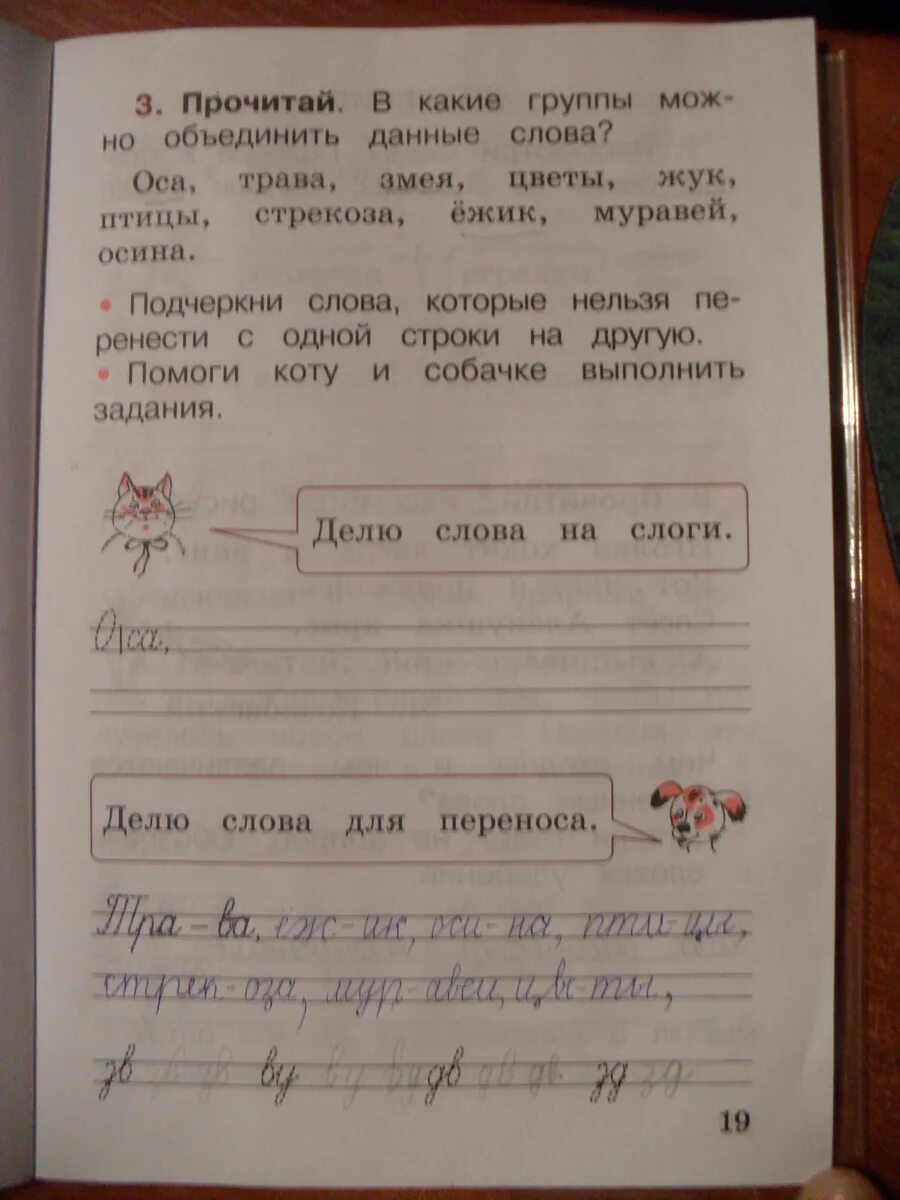 3. Прочитай. В какие группы мож-
но объединить данные слова?
Оса, трава, змея, цветы, жук,
птицы, стрекоза, ёжик, муравей,
осина.
• Подчеркни слова, которые нельзя пе-
ренести с одной строки на другую.
• Помоги коту и собачке выполнить
задания.
Делю слова на слоги.
О|са,
Делю слова для переноса.
Тра - ва, ёж - ик, оси - на, пти - цы,
стрек - оза, мур - авей, цве - ты,
зв зв зв ву ву ву дв дв дв зд зд
19